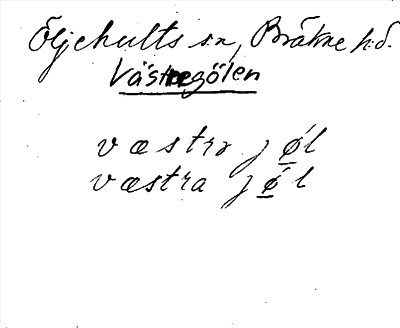 Öljehults sn, Bräkne hd.
Västregölen
væstrə jǿ̱l
væstra jǿ̱l